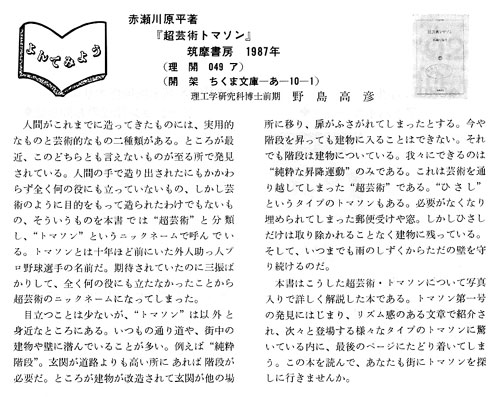 よんでみよう
赤瀬川原平著
『超芸術トマソン』
筑摩書房 1987年
(理 開 049 ア)
(開 架 ちくま文庫－あ－10－1)
理工学研究科博士前期 野島高彦
人間がこれまでに造ってきたものには、実用的
なものと芸術的なもの二種類がある。ところが最
近、このどちらとも言えないものが至る所で発見
されている。人間の手で造り出されたにもかかわ
らず全く何の役にも立っていないもの、しかし芸
術のように目的をもって造られたわけでもないも
の、そういうものを本書では“超芸術”と分類
し、“トマソン”というニックネームで呼んでい
る。トマソンとは十年ほど前にいた外人助っ人プ
ロ野球選手の名前だ。期待されていたのに三振ば
かりして、全く何の役にも立たなかったことから
超芸術のニックネームになってしまった。
目立つことは少ないが、“トマソン”は以外と
身近なところにある。いつもの通り道や、街中の
建物や壁に潜んでいることが多い。例えば“純粋
階段”。玄関が道路よりも高い所にあれば階段が
必要だ。ところが建物が改造されて玄関が他の場
所に移り、扉がふさがれてしまったとする。今や
階段を昇っても建物に入ることはできない。それ
でも階段は建物についている。我々にできるのは
“純粋な昇降運動”のみである。これは芸術を通
り越してしまった“超芸術”である。“ひさし”
というタイプのトマソンもある。必要がなくなり
埋められてしまった郵便受けや窓。しかしひさし
だけは取り除かれることなく建物に残っている。
そして、いつまでも雨のしずくからただの壁を守
り続けるのだ。
本書はこうした超芸術・トマソンについて写真
入りで詳しく解説した本である。トマソン第一号
の発見にはじまり、リズム感のある文章で紹介さ
れ、次々と登場する様々なタイプのトマソンに驚
いている内に、最後のページにたどり着いてしま
う。この本を読んで、あなたも街にトマソンを探
しに行きませんか。